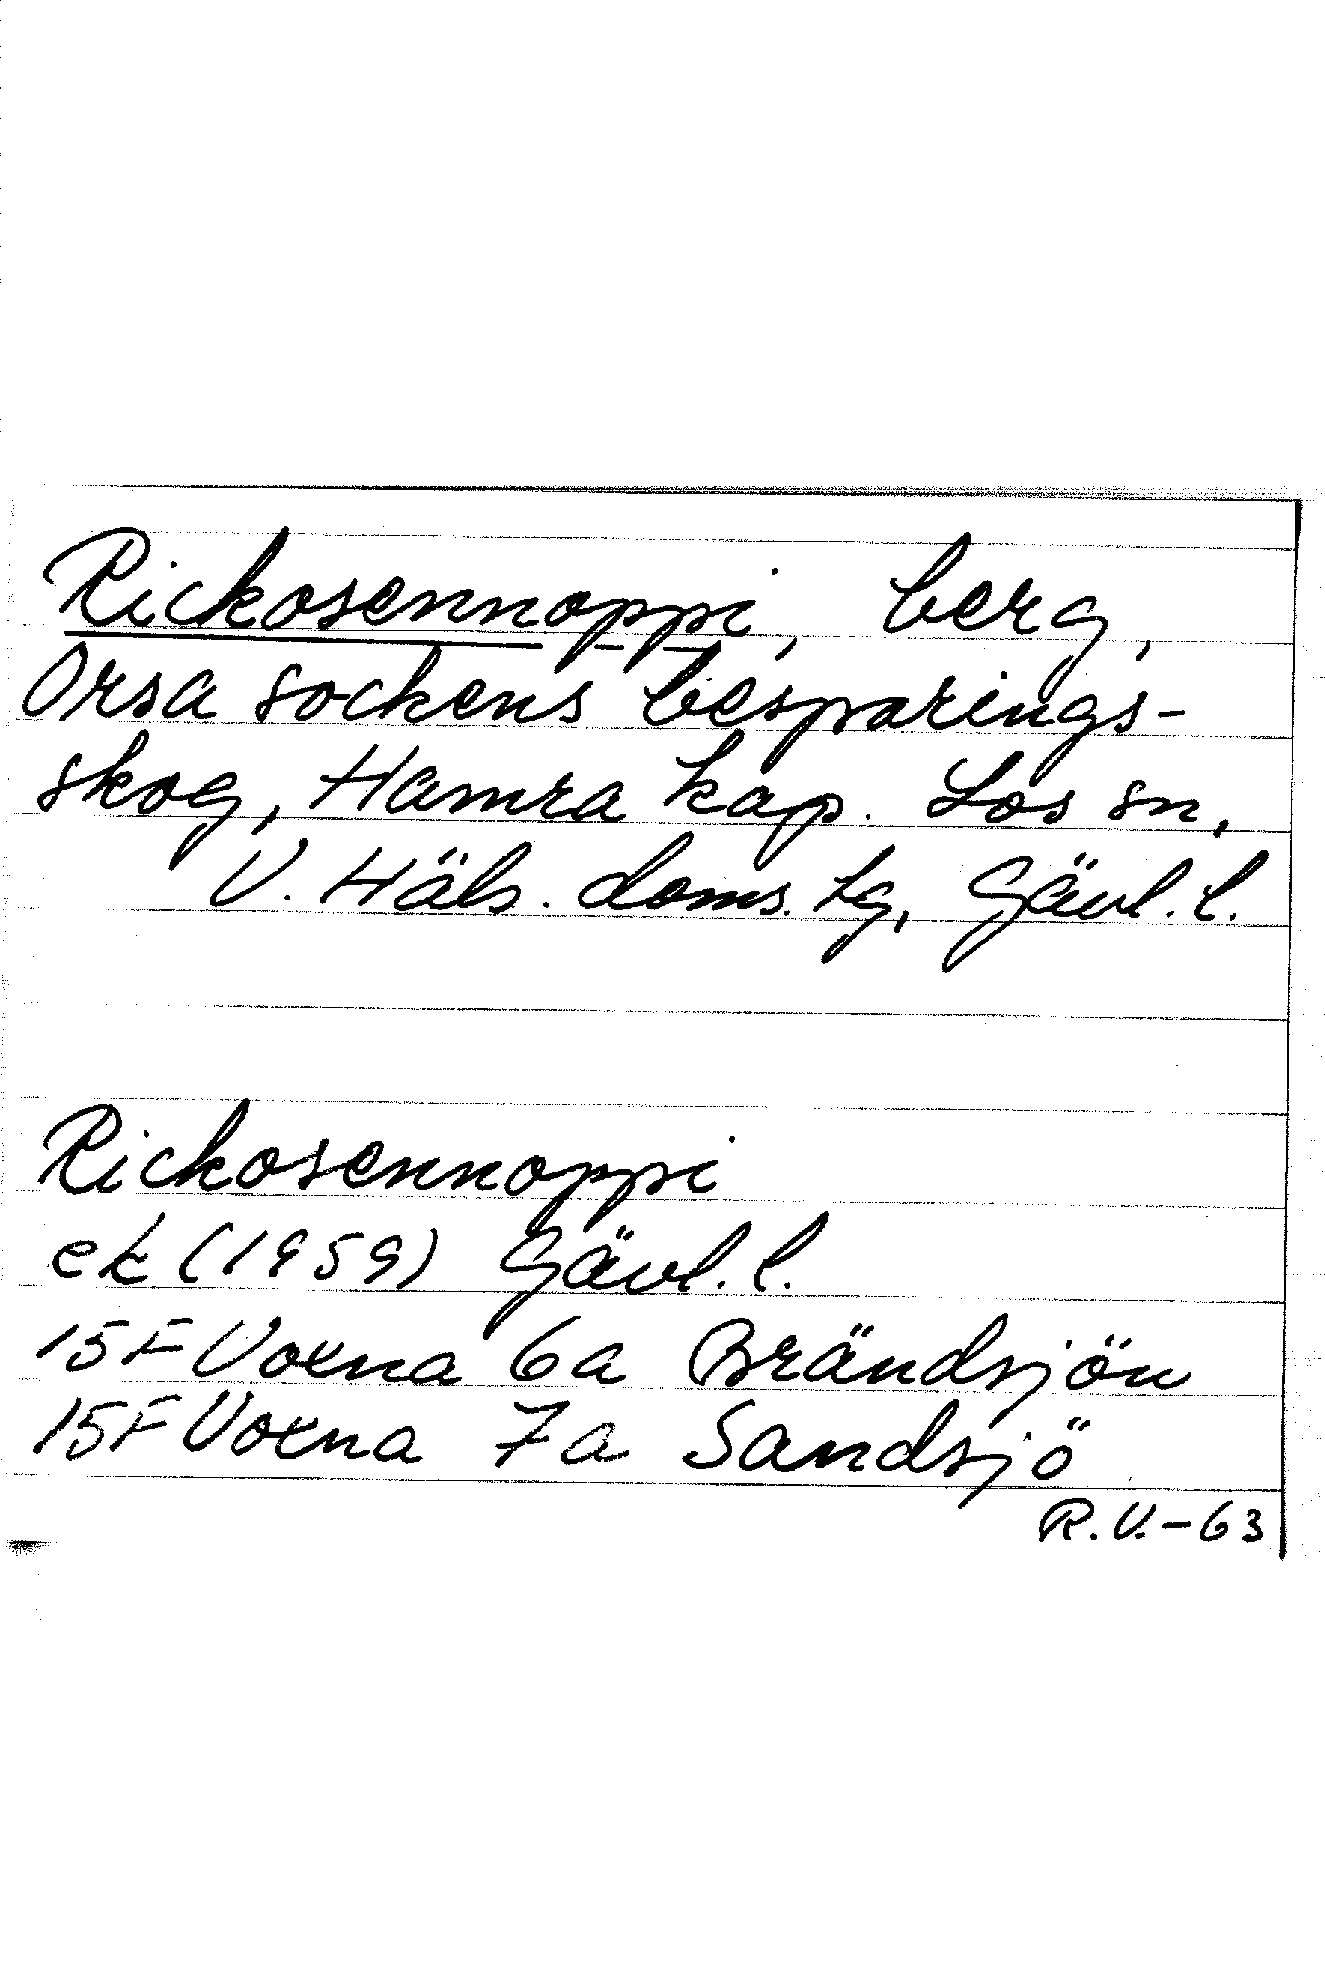 Rickosennoppi, berg,
Orsa sockens besparings-
skog, Hamra kap. Los sn,
V. Häls. doms. tg, Gävl. l.
Rickosennoppi
ek (1959) Gävl. l.
15F Voxna 6a Brändsjön
15F Voxna 7a Sandsjö
R.V.-63